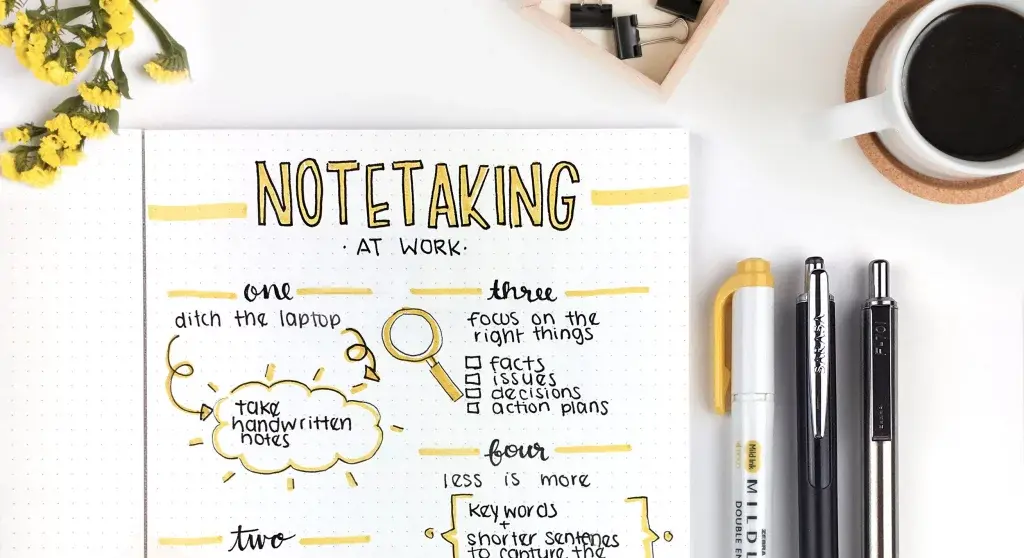 NOTETAKING
· AT WORK ·
one
ditch the laptop
take
handwritten
notes
two
three
focus on the
right things
facts
issues
decisions
action plans
four
less is more
key words
+
shorter sentences
to capture the
Mild Ink
MILDL
DOUBLE EN
ZEBRA
SAKASA
F-701